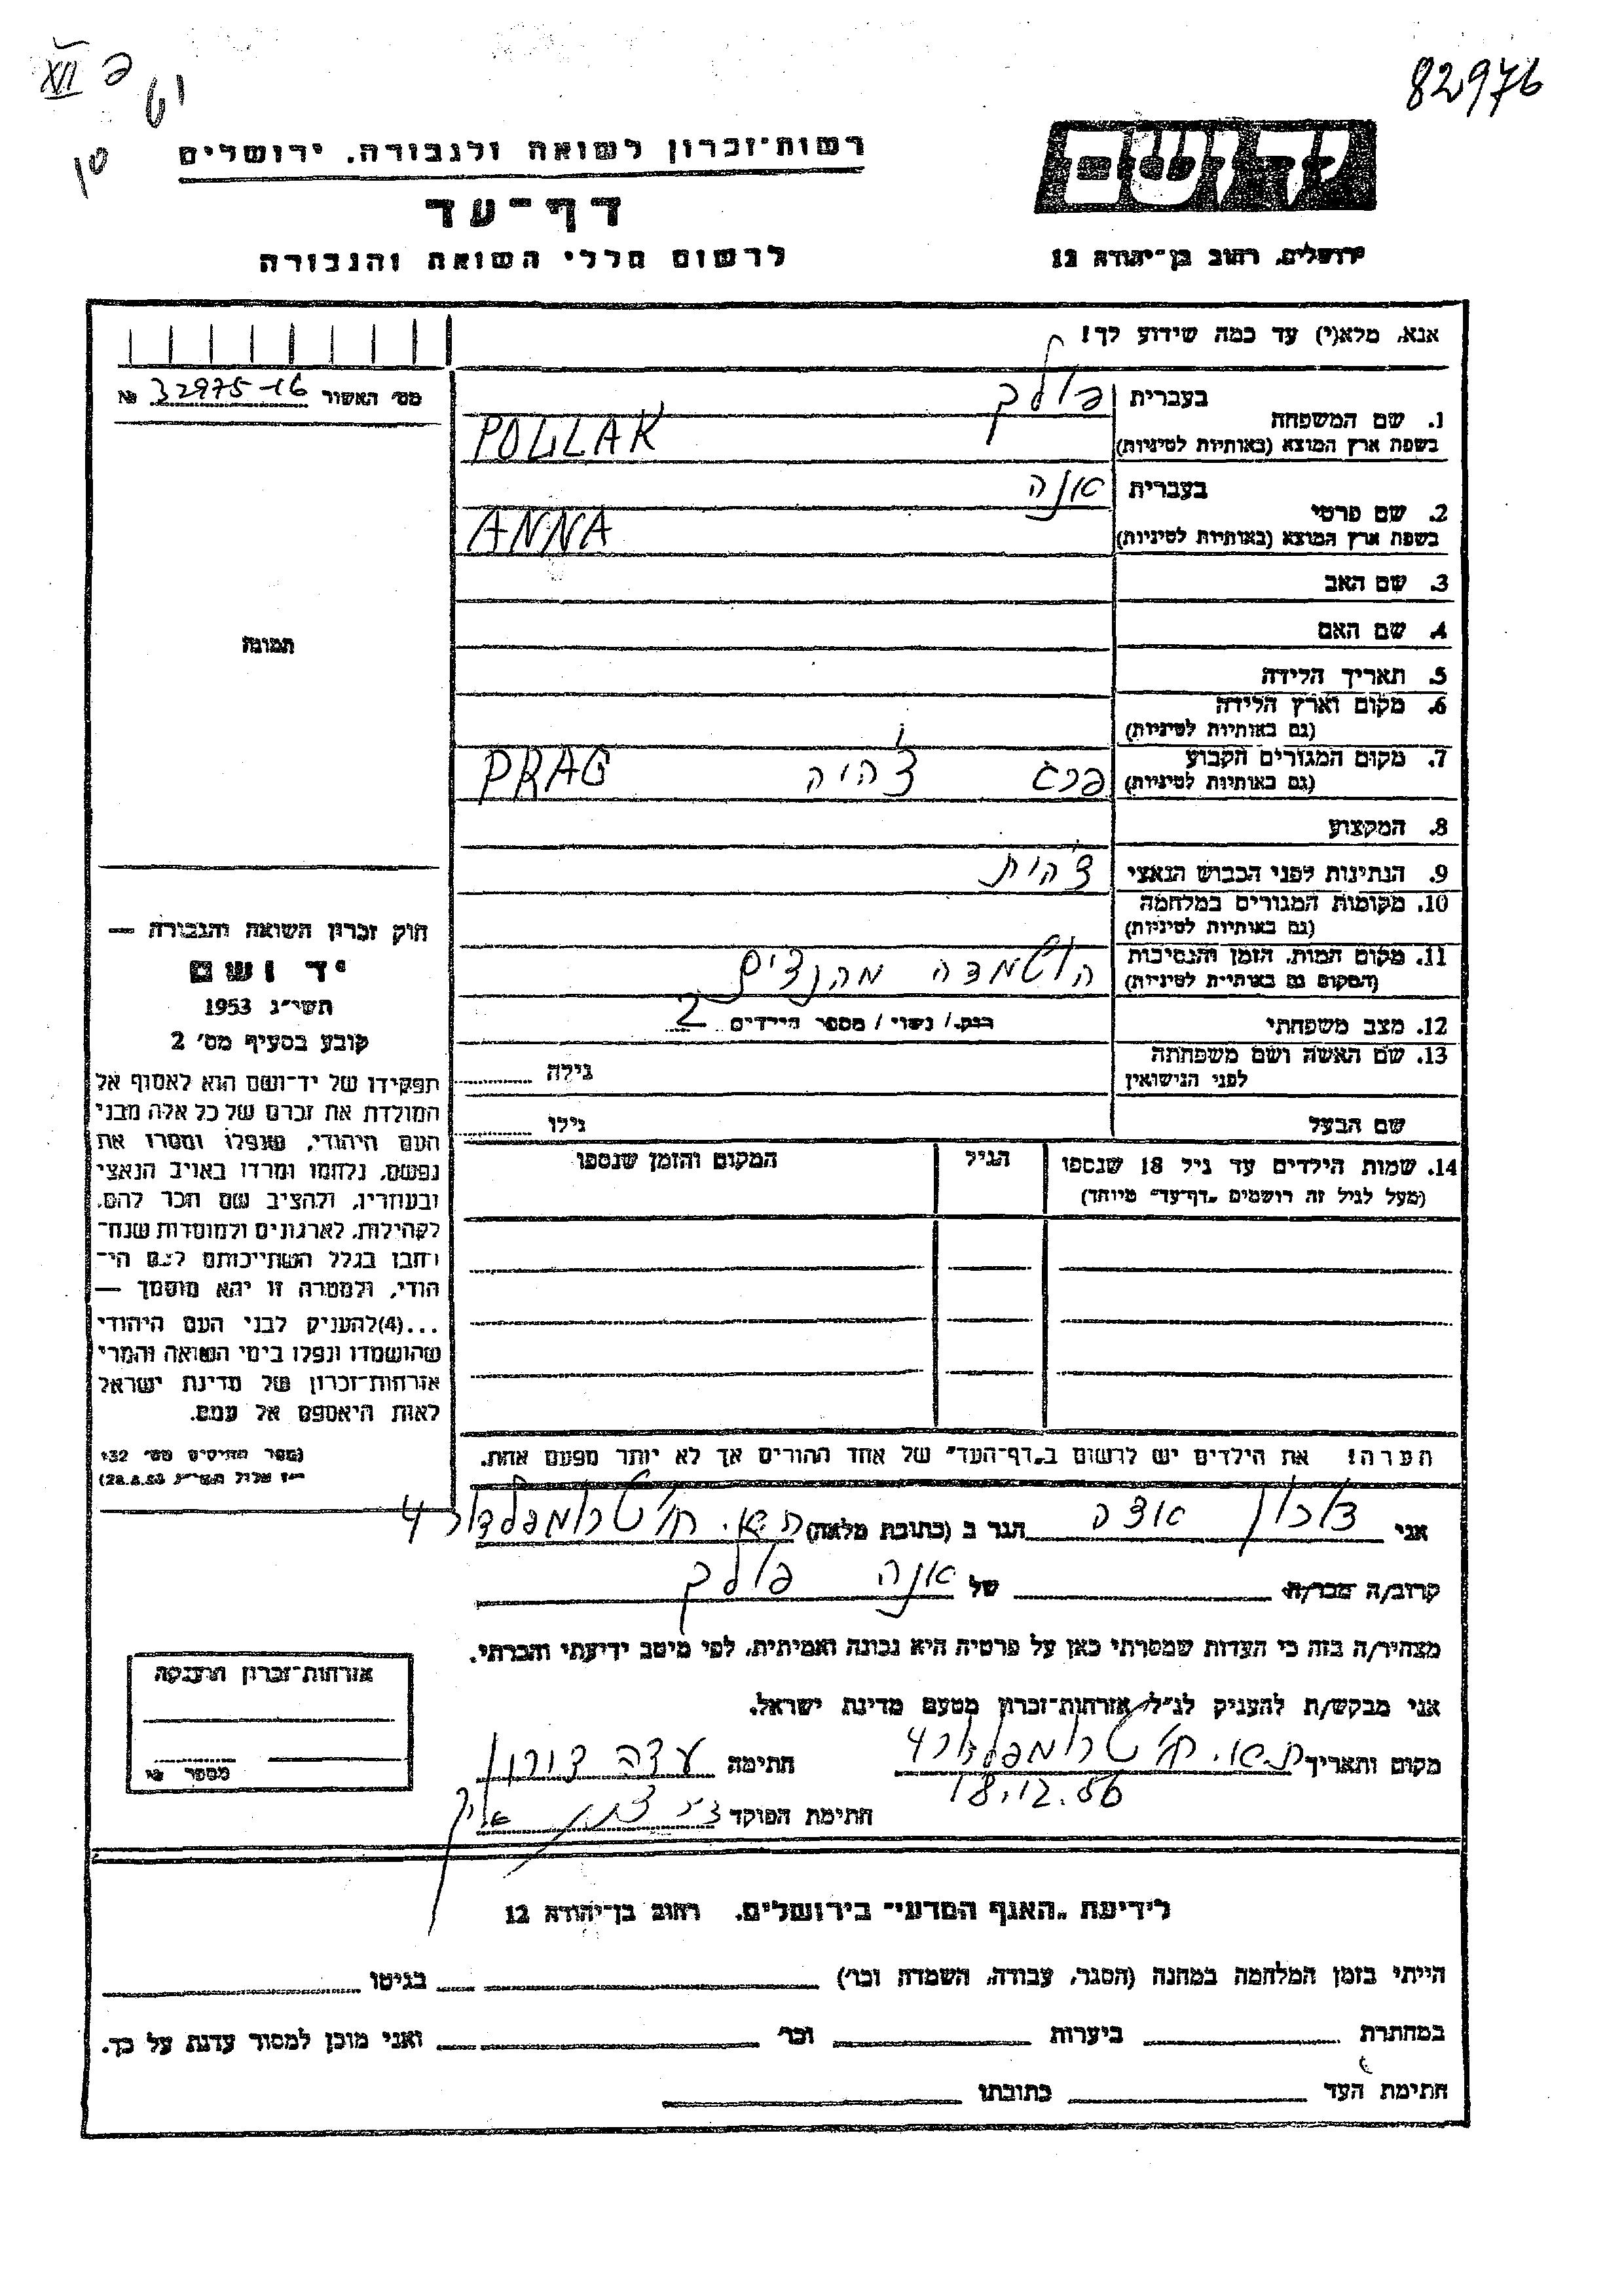 82976
XII פ
רשות-זכרון לשואה ולגבורה, ירושלים
דף-עד
לרשום חללי השואה והגבורה
יד ושם
ירושלים, רחוב בן-יהודה 12
אנא, מלא(י) עד כמה שידוע לך!
מס׳ האשור № 32975-16
1. שם המשפחה
בעברית פולק
בשפת ארץ המוצא (באותיות לטיניות) POLLAK
2. שם פרטי
בעברית אנה
בשפת ארץ המוצא (באותיות לטיניות) ANNA
3. שם האב
4. שם האם
תמונה
5. תאריך הלידה
6. מקום וארץ הלידה
(גם באותיות לטיניות)
7. מקום המגורים הקבוע
(גם באותיות לטיניות) פרג צ'היה PRAG
8. המקצוע
9. הנתינות לפני הכבוש הנאצי צ'הית
10. מקומות המגורים במלחמה
(גם באותיות לטיניות)
11. מקום המות, הזמן והנסיבות
(המקום גם באותיות לטיניות) הושמדה מהנצים
12. מצב משפחתי רווק/ נשוי/ מספר הילדים 2
13. שם האשה ושם משפחתה
לפני הנישואין
גילה
שם הבעל גילו
14. שמות הילדים עד גיל 18 שנספו
(מעל לגיל זה רושמים „דף-עד" מיוחד)
הגיל
המקום והזמן שנספו
חוק זכרון השואה והגבורה —
יד ושם
תשי״ג 1953
קובע בסעיף מס׳ 2
תפקידו של יד-ושם הוא לאסוף אל
המולדת את זכרם של כל אלה מבני
העם היהודי, שנפלו ומסרו את
נפשם, נלחמו ומרדו באויב הנאצי
ובעוזריו, ולהציב שם וזכר להם,
לקהילות, לארגונים ולמוסדות שנח־
רבו בגלל השתייכותם לעם הי־
הודי, ולמטרה זו יהא מוסמך —
...(4)להעניק לבני העם היהודי
שהושמדו ונפלו בימי השואה והמרי
אזרחות-זכרון של מדינת ישראל
לאות היאספם אל עמם.
(ספר החוקים מס׳ 132
י״ז אלול תשי״ג 28.8.53)
הערה! את הילדים יש לרשום ב„דף-העד" של אחד ההורים אך לא יותר מפעם אחת.
אני דורון אדה הגר ב (כתובת מלאה) ת.א. רח' טרומפלדור 4
קרוב/ה מכר/ה של אנה פולק
מצהיר/ה בזה כי העדות שמסרתי כאן על פרטיה היא נכונה ואמיתית, לפי מיטב ידיעתי והכרתי.
אני מבקש/ת להעניק לנ״ל אזרחות-זכרון מטעם מדינת ישראל.
מקום ותאריך ת.א. רח' טרומפלדור 4 חתימה עדה דורון
18.12.56
חתימת הפוקד
אזרחות-זכרון הוענקה
מספר
לידיעת „האגף המדעי" בירושלים, רחוב בן-יהודה 12
הייתי בזמן המלחמה במחנה (הסגר, עבודה, השמדה וכר׳) בגיטו
במחתרת ביערות וכר׳ ואני מוכן למסור עדות על כך.
חתימת העד כתובתו